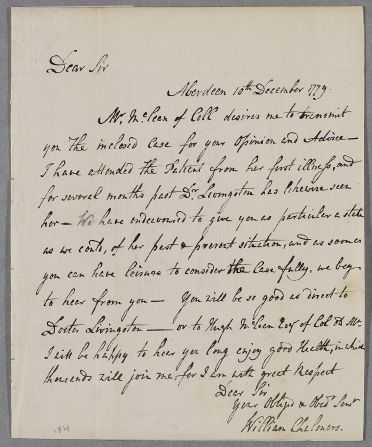 Dear Sir
Aberdeen 10th December 1779.
Mr. McLean of Coll desires me to transmit
you The inclosed Case for your Opinion and Advice —
I have attended the Patient from her first illness, and
for several months past Dr. Livingston has likewise seen
her — We have endeavoured to give you as particular a state
as we could, of her past & present situation, and as soon as
you can have leisure to consider the Case fully, we beg
to hear from you — You will be so good as direct to
Doctor Livingston — or to Hugh McLean Esqr of Col
I will be happy to hear you long enjoy good Health, in which
thousands will join me for I am with great Respect
Dear Sir
Your Obliged & Obedt Servt
William Chalmers.